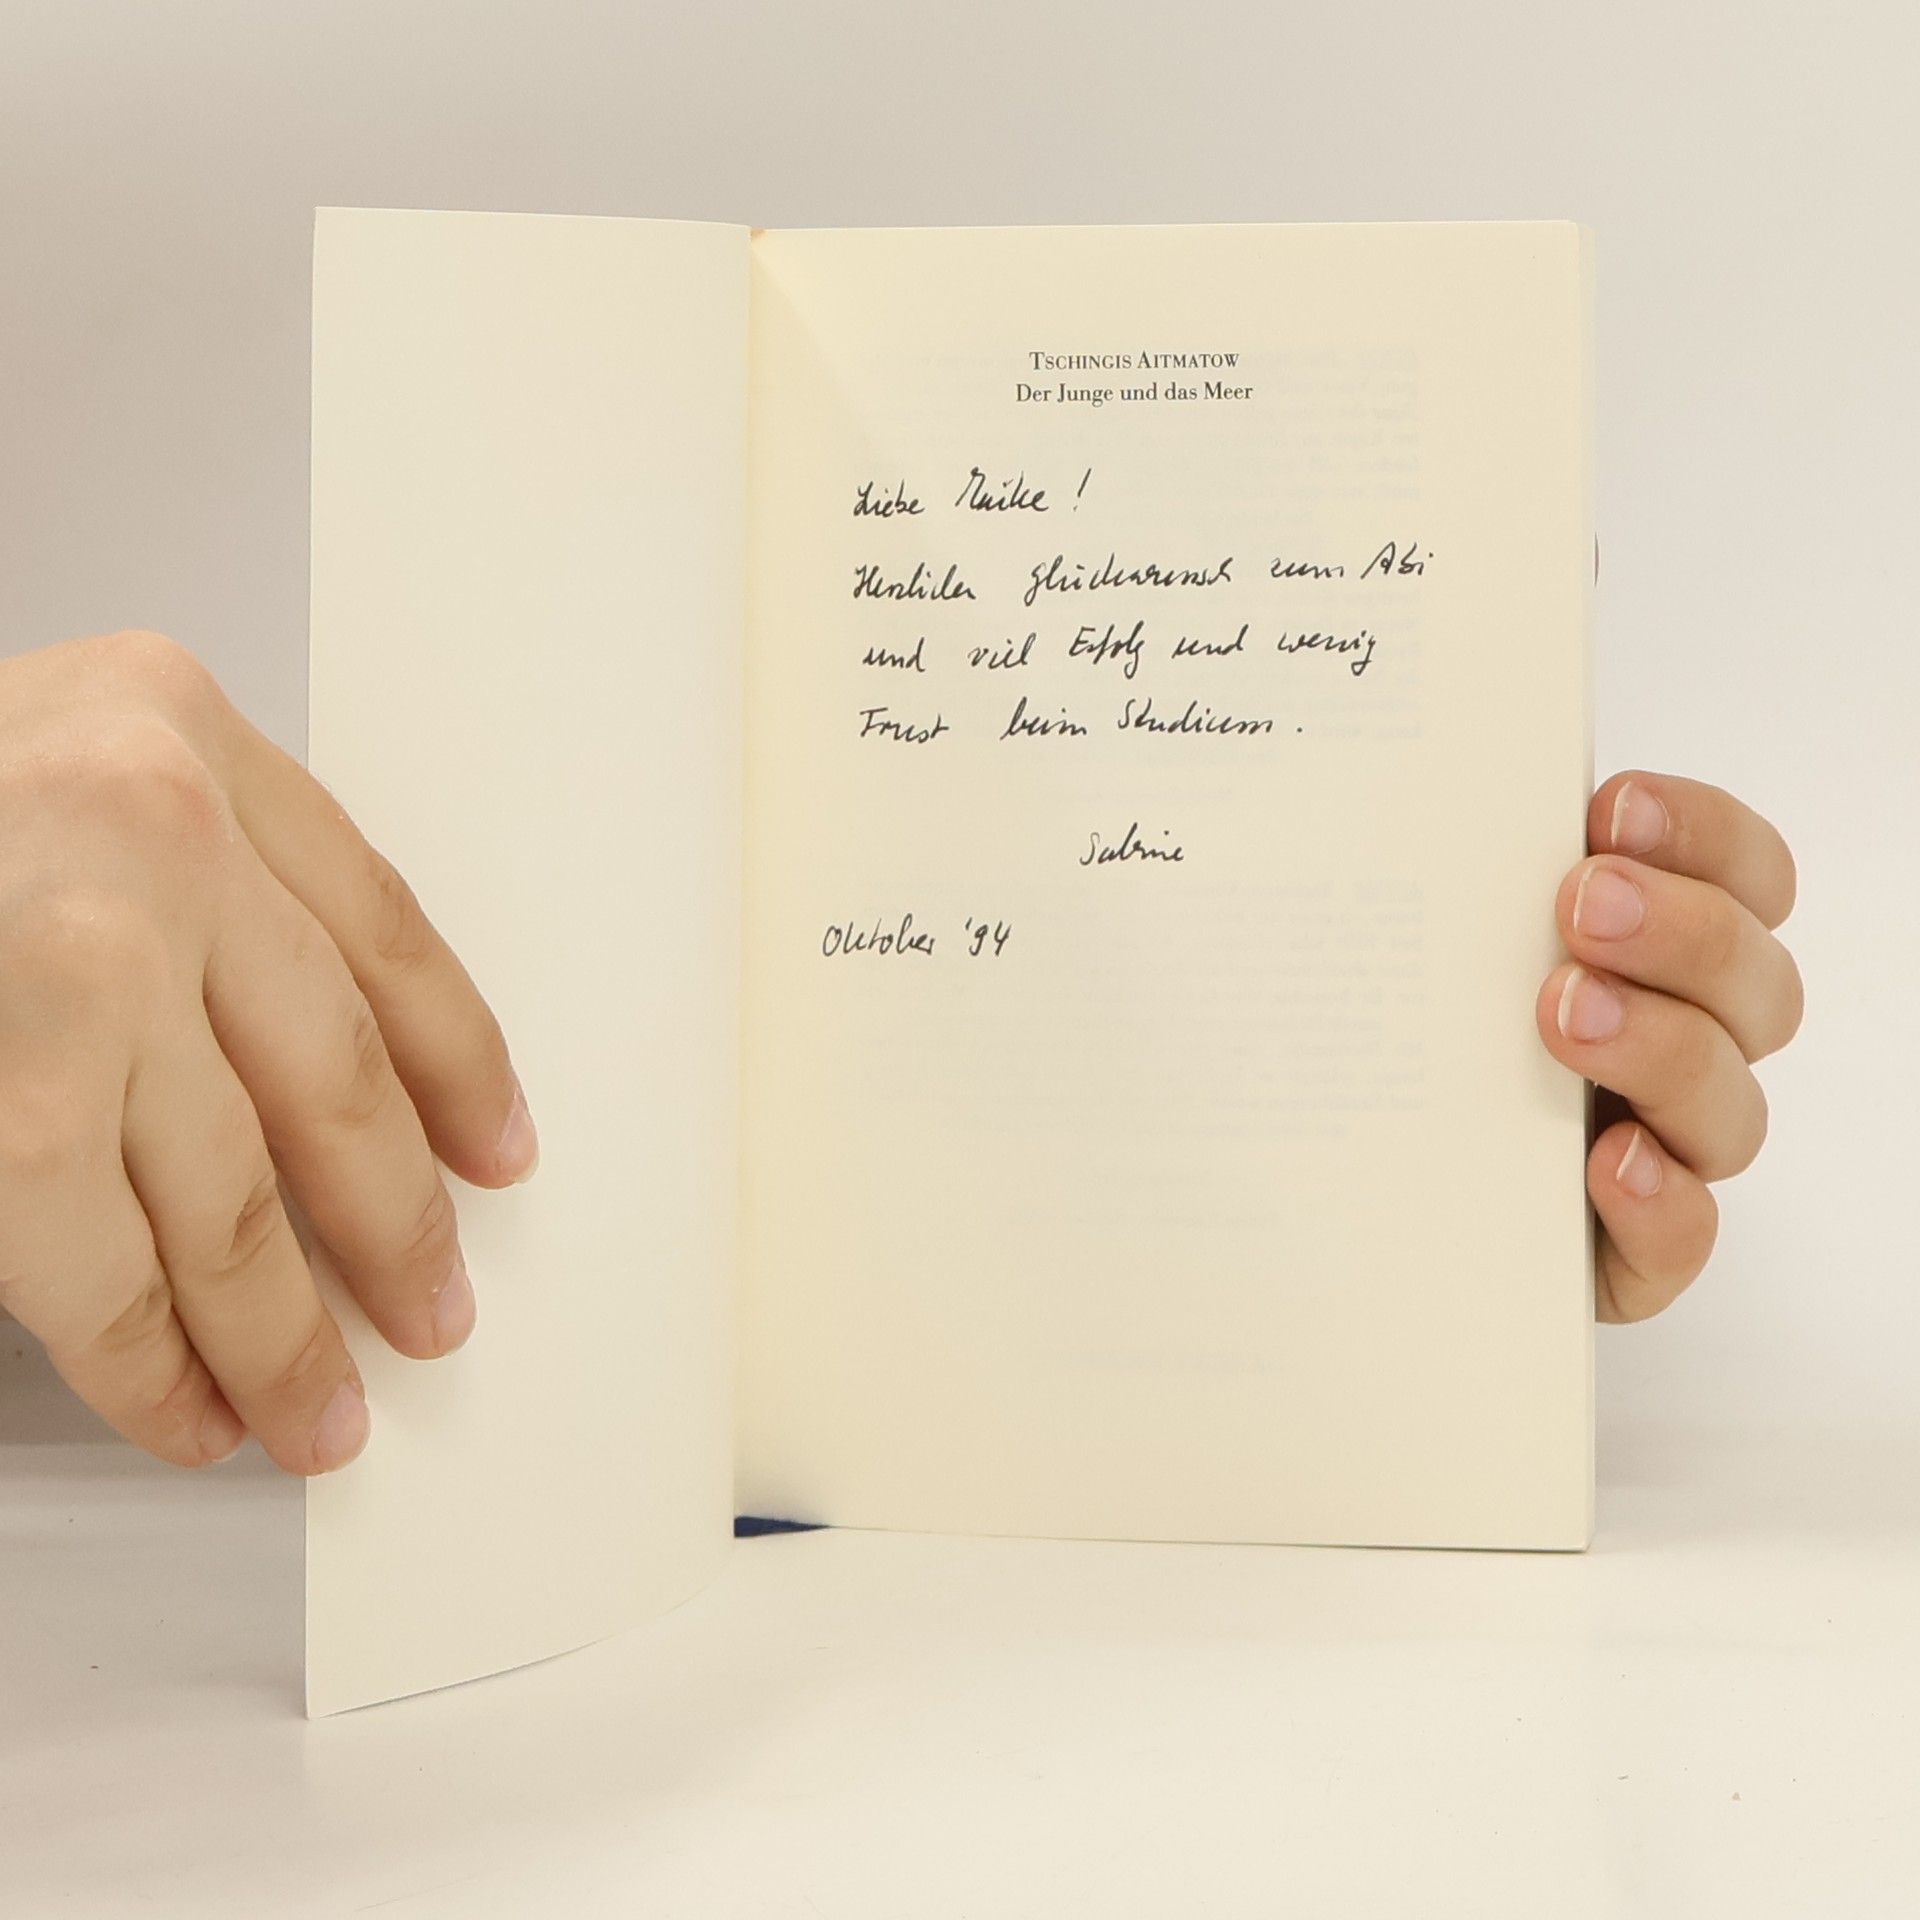 TSCHINGIS AITMATOW
Der Junge und das Meer
Liebe Maike!
Herzlichen Glückwunsch zum Abi
und viel Erfolg und wenig
Frust beim Studium.
Sabine
Oktober '94